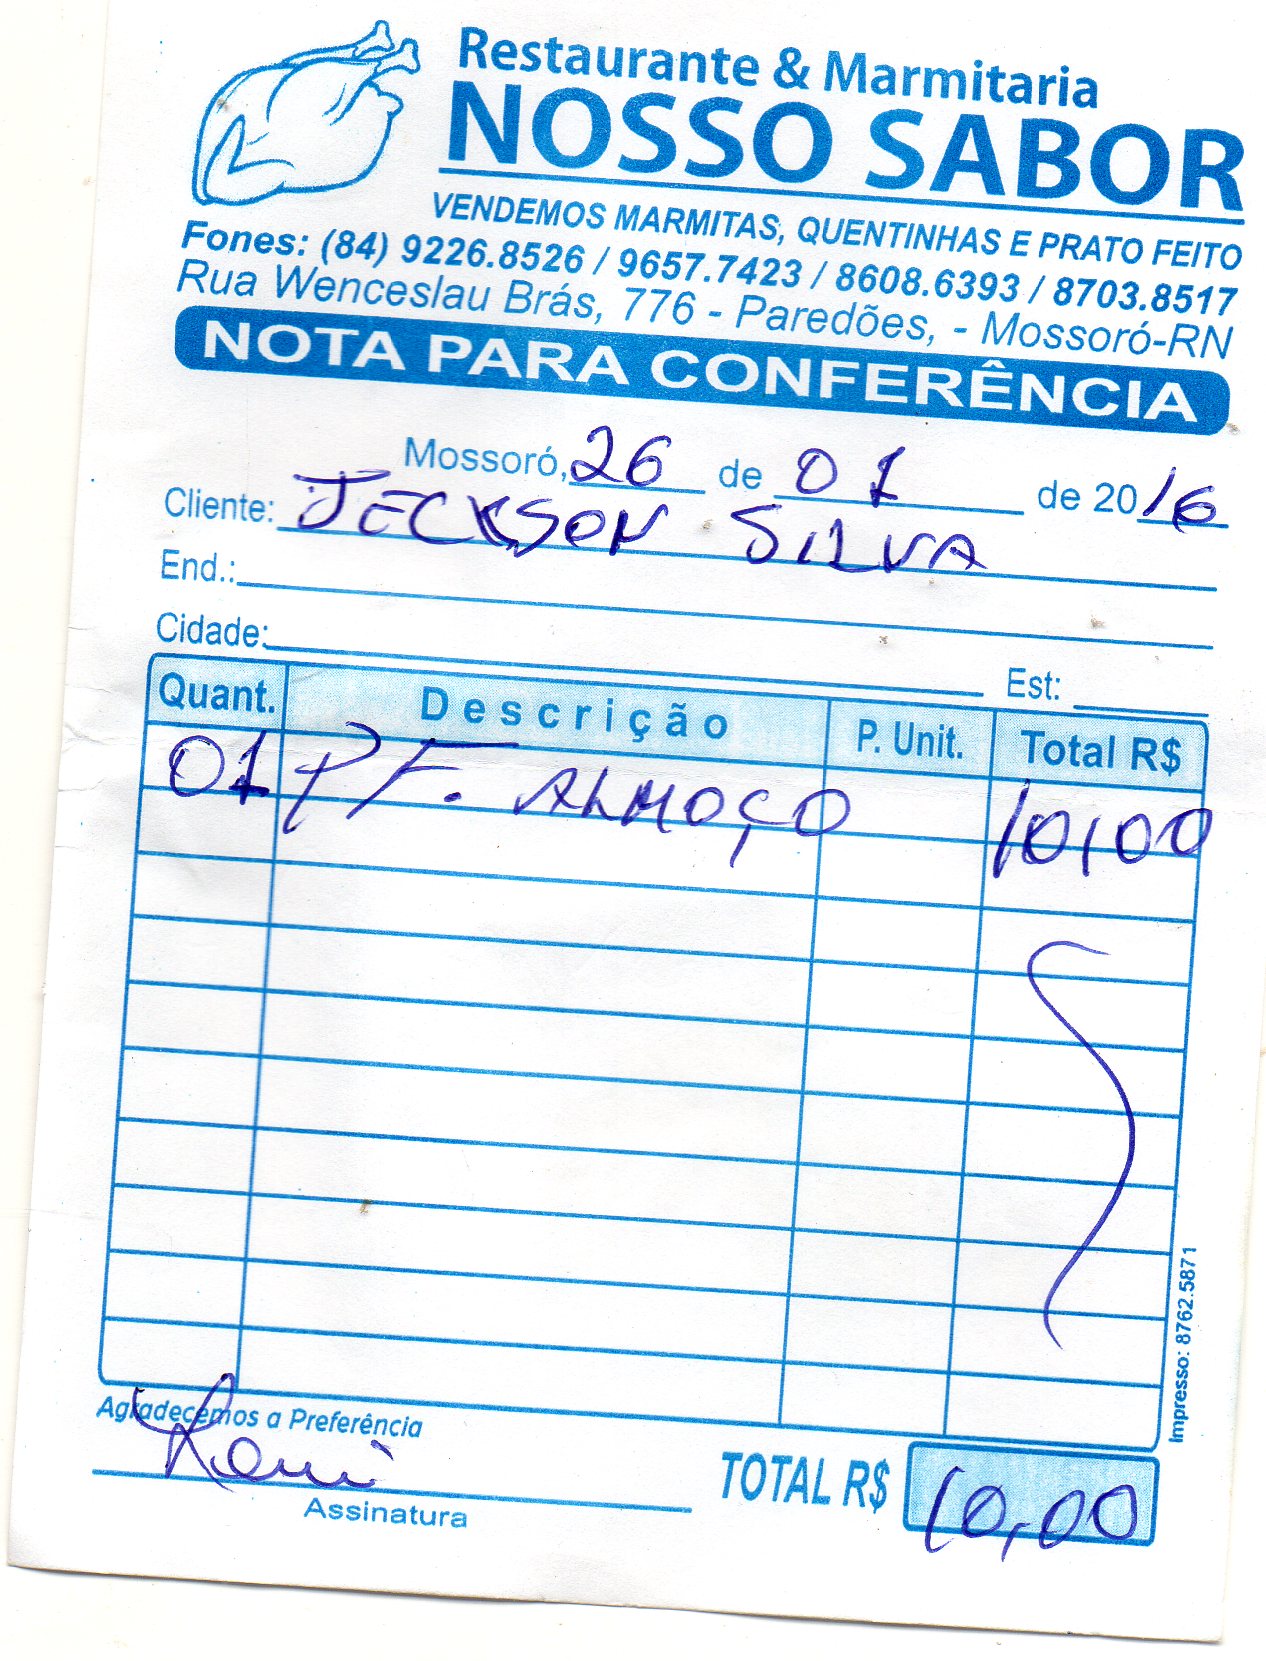 Restaurante & Marmitaria
NOSSO SABOR
VENDEMOS MARMITAS, QUENTINHAS E PRATO FEITO
Fones: (84) 9226.8526 / 9657.7423 / 8608.6393 / 8703.8517
Rua Wenceslau Brás, 776 - Paredões, - Mossoró-RN
NOTA PARA CONFERÊNCIA
Mossoró, 26 de 01 de 2016
Cliente: JECKSON SILVA
End.:
Cidade: Est:
Quant. Descrição P. Unit. Total R$
01 PF. ALMOÇO 10,00
Impresso: 8762.5871
Agradecemos a Preferência
TOTAL R$ 10,00
Assinatura